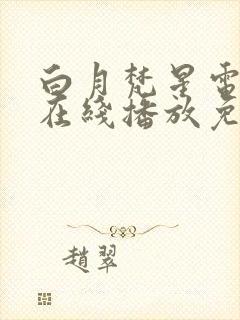 白月梵星電
在綫播放免
趙翠